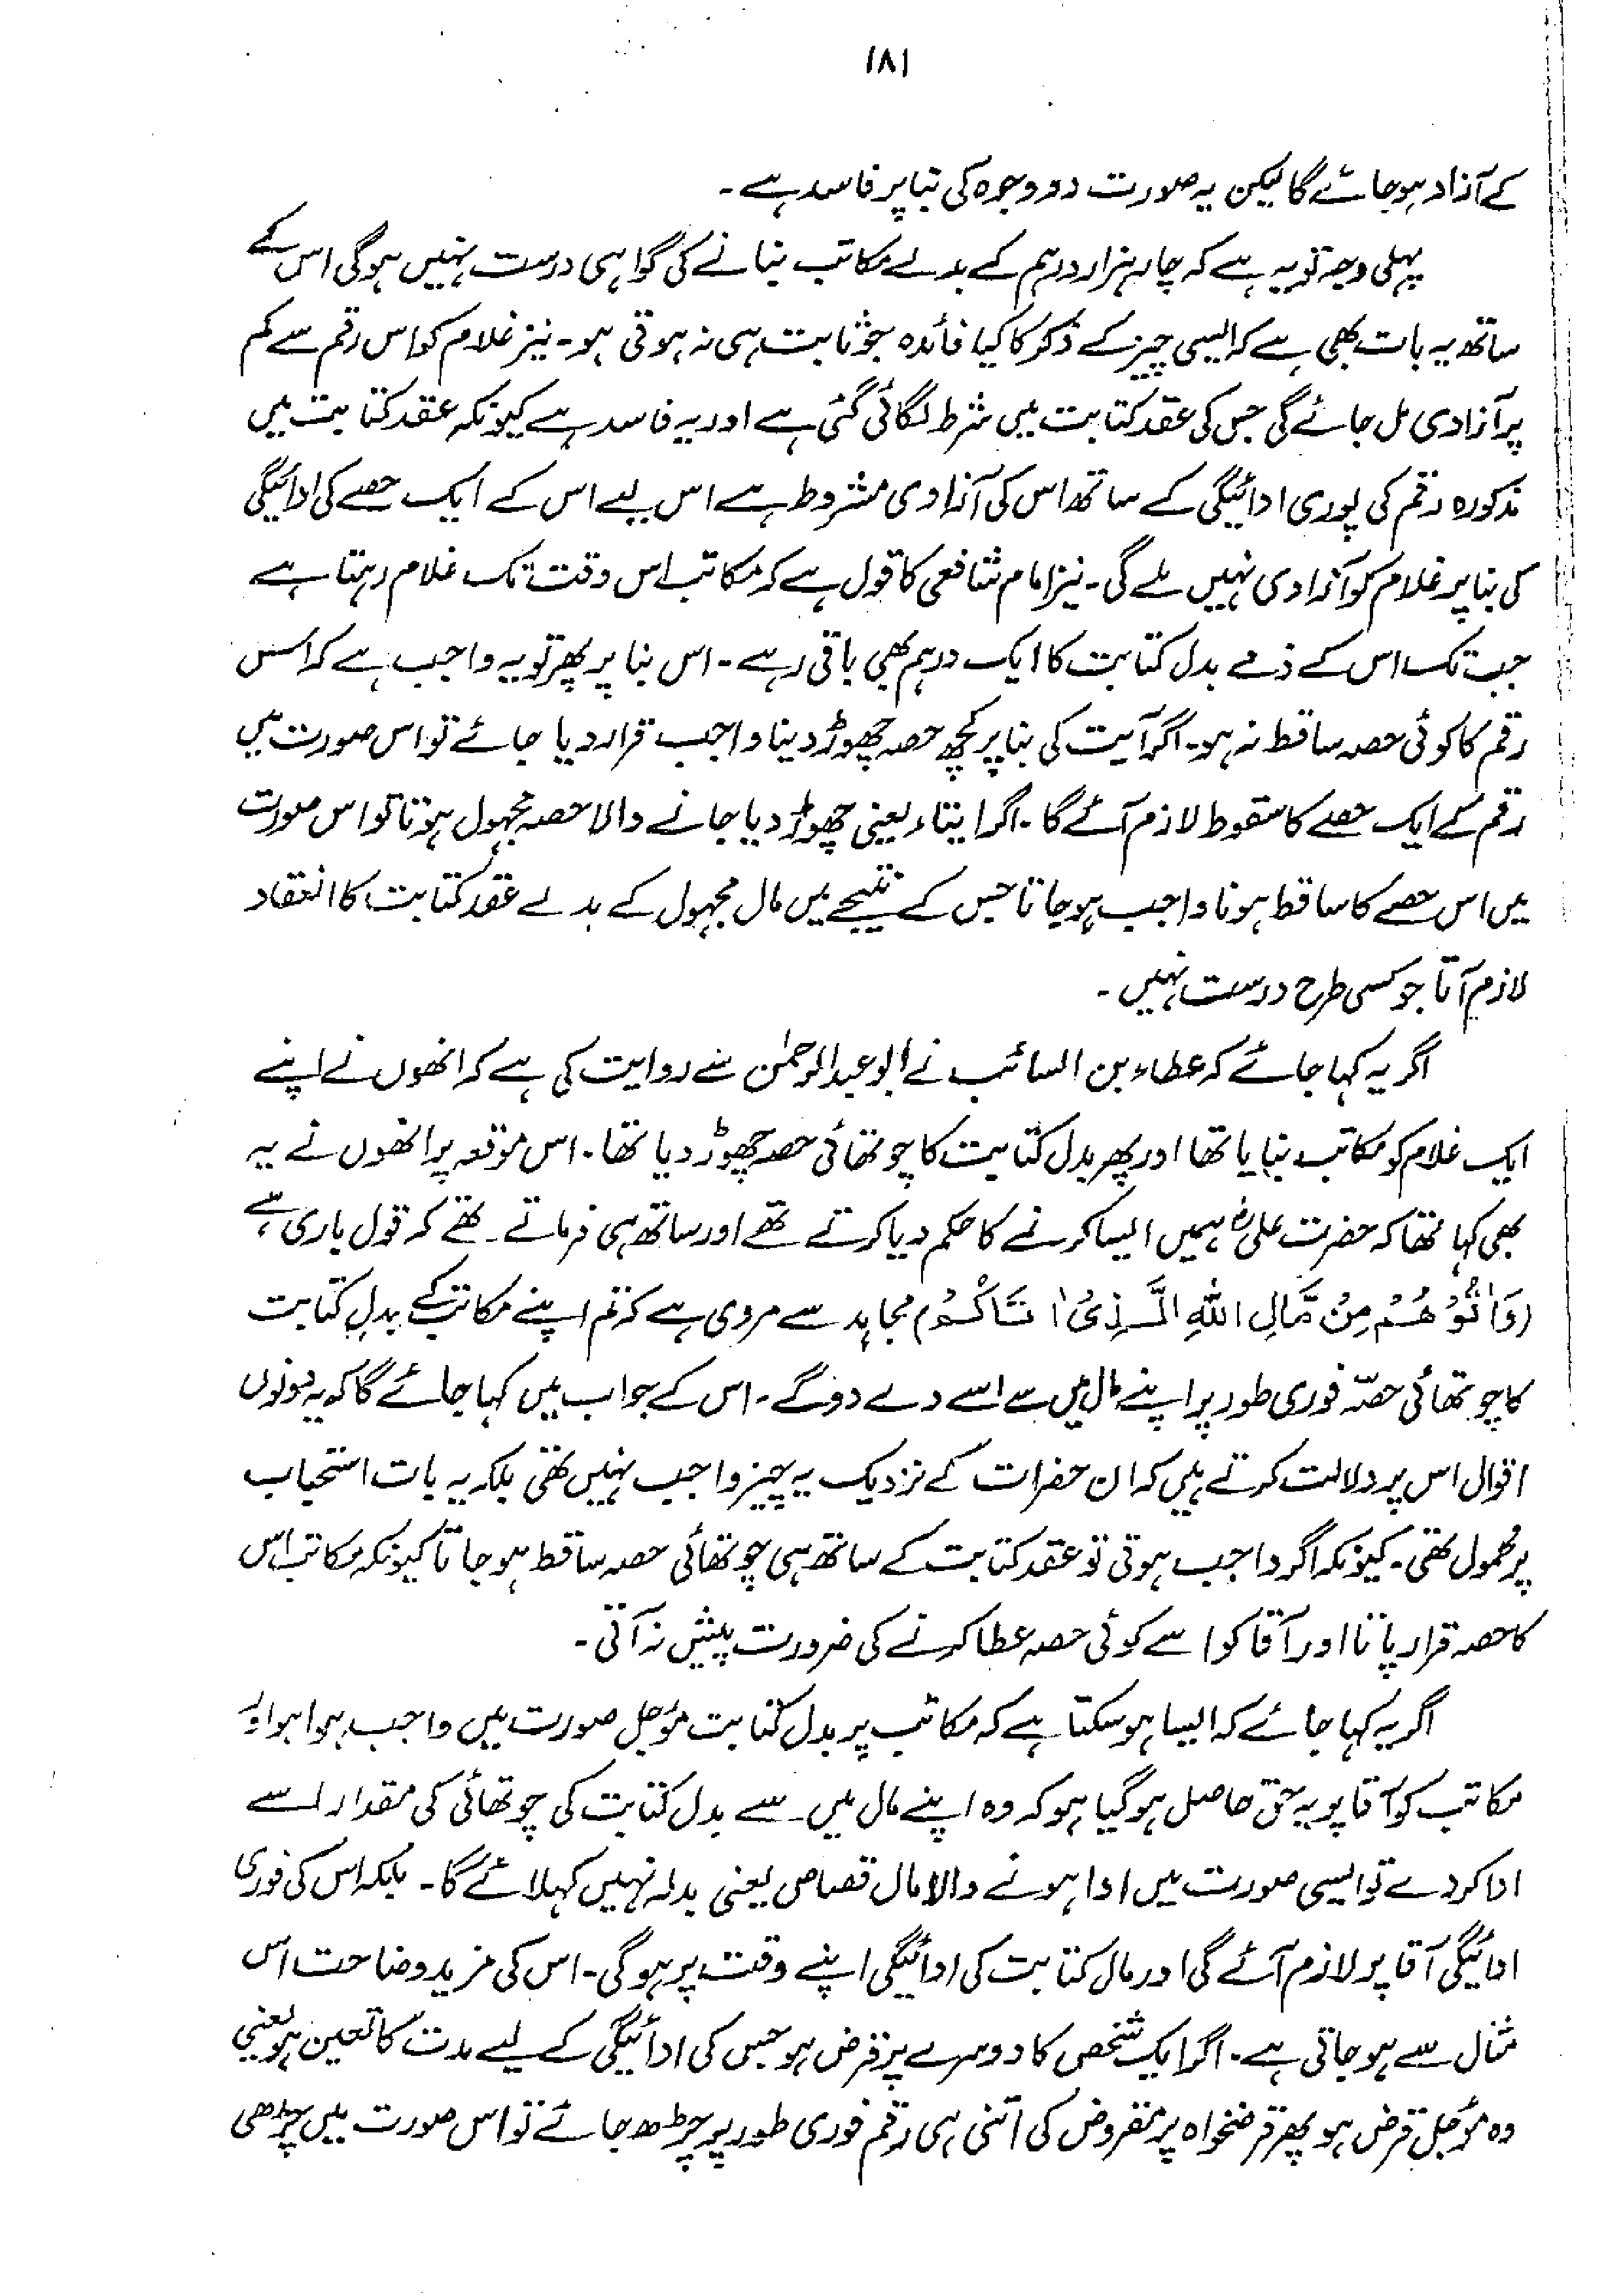 ۱۸۱
کے آزاد ہو جائے گا لیکن یہ صورت دو وجوہ کی بنا پر فاسد ہے۔
پہلی وجہ تو یہ ہے کہ چار ہزار درہم کے بدلے مکاتب بنانے کی گواہی درست نہیں ہوگی اس کے
ساتھ یہ بات بھی ہے کہ ایسی چیز کے ذکر کا کیا فائدہ جو ثابت ہی نہ ہوتی ہو۔ نیز غلام کو اس رقم سے کم
پر آزادی مل جائے گی جس کی عقد کتابت میں شرط لگائی گئی ہے اور یہ فاسد ہے کیونکہ عقد کتابت میں
مذکورہ رقم کی پوری ادائیگی کے ساتھ اس کی آزادی مشروط ہے اس لیے اس کے ایک حصے کی ادائیگی
کی بنا پر غلام کو آزادی نہیں ملے گی۔ نیز امام شافعی کا قول ہے کہ مکاتب اس وقت تک غلام رہتا ہے
جب تک اس کے ذمے بدل کتابت کا ایک درہم بھی باقی رہے۔ اس بنا پر پھر تو یہ واجب ہے کہ اس
رقم کا کوئی حصہ ساقط نہ ہو۔ اگر آیت کی بنا پر کچھ حصہ چھوڑ دینا واجب قرار دیا جائے تو اس صورت میں
رقم کے ایک حصے کا سقوط لازم آئے گا۔ اگر ایتاء یعنی چھوڑ دیا جانے والا حصہ مجہول ہوتا تو اس صورت
میں اس حصے کا ساقط ہونا واجب ہو جاتا جس کے نتیجے میں مال مجہول کے بدلے عقد کتابت کا انعقاد
لازم آتا جو کسی طرح درست نہیں۔
اگر یہ کہا جائے کہ عطاء بن السائب نے ابو عبدالرحمٰن سے روایت کی ہے کہ انھوں نے اپنے
ایک غلام کو مکاتب بنایا تھا اور پھر بدل کتابت کا چوتھائی حصہ چھوڑ دیا تھا۔ اس موقعہ پر انھوں نے یہ
بھی کہا تھا کہ حضرت علیؓ ہمیں ایسا کرنے کا حکم دیا کرتے تھے اور ساتھ ہی فرماتے تھے کہ قول باری ہے،
(وَاٰتُوْهُمْ مِنْ مَّالِ اللّٰهِ الَّذِیْ اٰتَاكُمْ) مجاہد سے مروی ہے کہ تم اپنے مکاتب کے بدلِ کتابت
کا چوتھائی حصّہ فوری طور پر اپنے مال میں سے اسے دے دو گے۔ اس کے جواب میں کہا جائے گا کہ یہ دونوں
اقوال اس پر دلالت کرتے ہیں کہ ان حضرات کے نزدیک یہ چیز واجب نہیں تھی بلکہ یہ بات استحباب
پر محمول تھی۔ کیونکہ اگر واجب ہوتی تو عقد کتابت کے ساتھ ہی چوتھائی حصہ ساقط ہو جاتا کیونکہ مکاتب اس
کا حصہ قرار پاتا اور آقا کو اسے کوئی حصہ عطا کرنے کی ضرورت پیش نہ آتی۔
اگر یہ کہا جائے کہ ایسا ہو سکتا ہے کہ مکاتب پر بدل کتابت مؤجل صورت میں واجب ہوا ہو اور
مکاتب کو آقا پر یہ حق حاصل ہو گیا ہو کہ وہ اپنے مال میں سے بدل کتابت کی چوتھائی کی مقدار اسے
ادا کر دے تو ایسی صورت میں ادا ہونے والا مال قصاص یعنی بدلہ نہیں کہلائے گا۔ بلکہ اس کی فوری
ادائیگی آقا پر لازم آئے گی اور مال کتابت کی ادائیگی اپنے وقت پر ہوگی۔ اس کی مزید وضاحت اس
مثال سے ہو جاتی ہے۔ اگر ایک شخص کا دوسرے پر قرض ہو جس کی ادائیگی کے لیے مدت کا تعین ہو یعنی
وہ مؤجل قرض ہو پھر قرضخواہ پر مقروض کی اتنی ہی رقم فوری طور پر چڑھ جائے تو اس صورت میں چڑھی